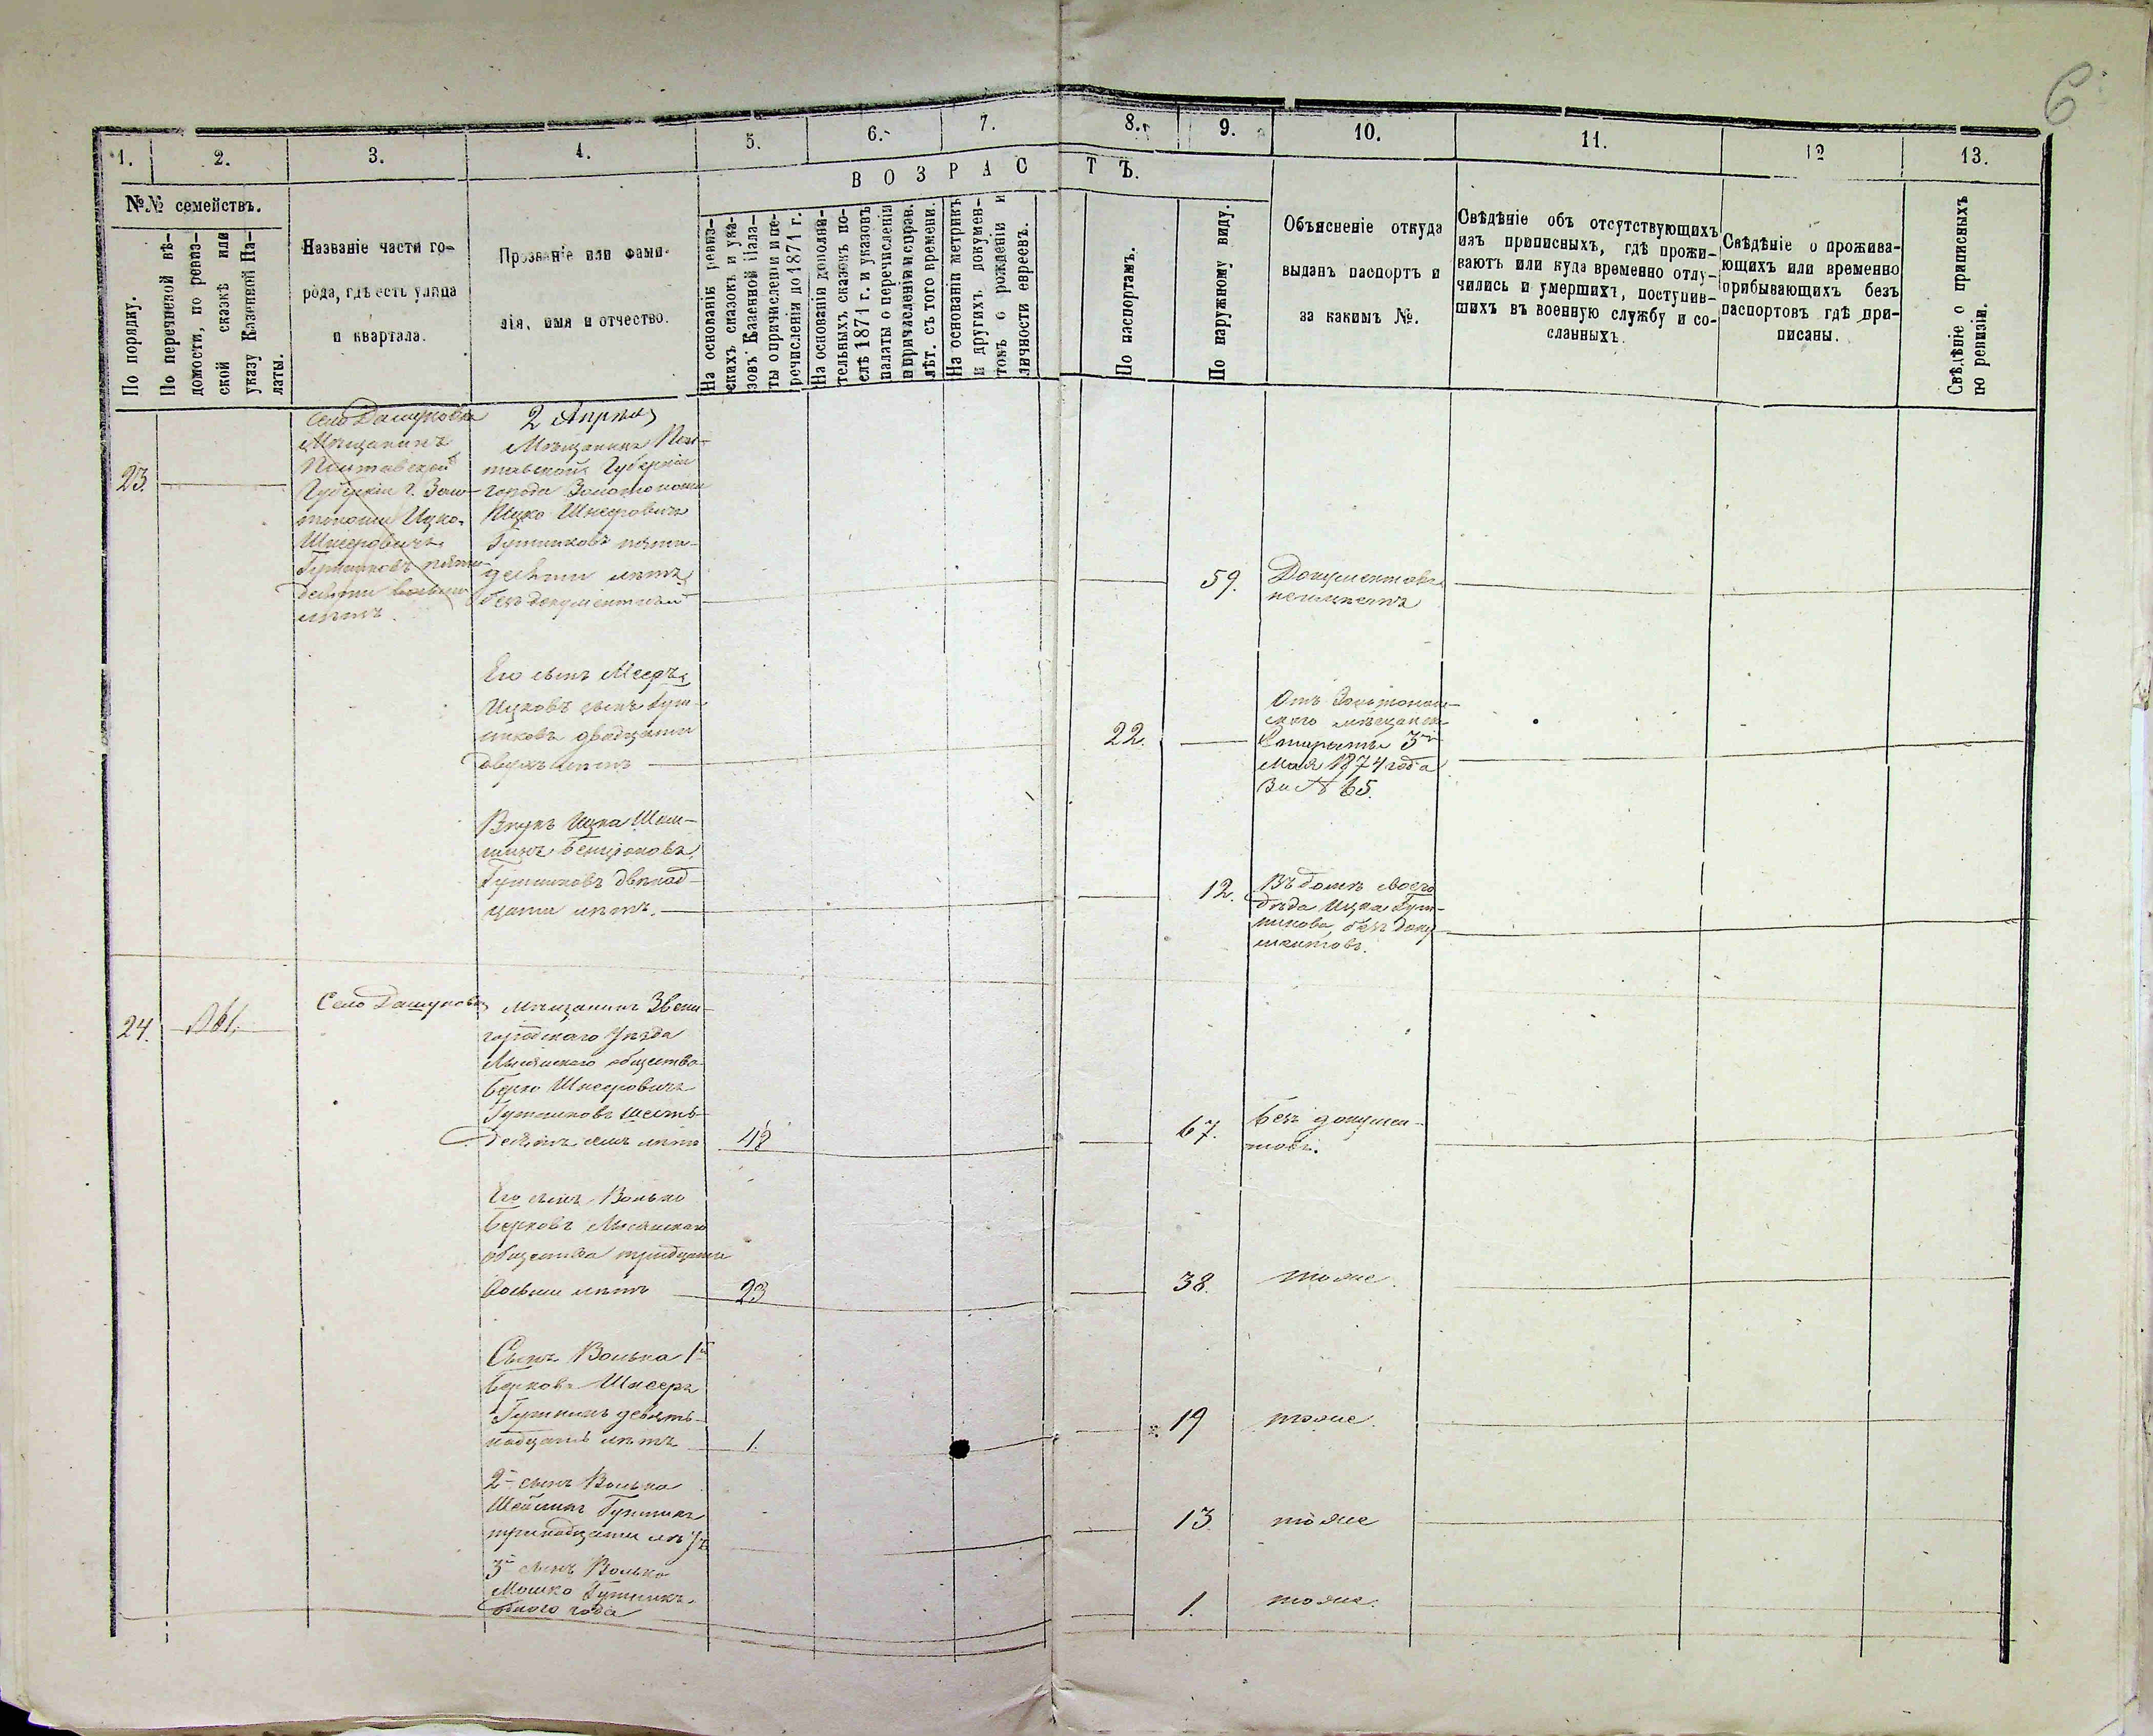 6
1. 2. 3. 4. 5. 6. 7. 8. 9. 10. 11. 12 13.
ВОЗРАСТЪ.
№№ семействъ.
По порядку.
По перечневой вѣ-
домости, по ревиз-
ской сказкѣ или
указу Казенной Па-
латы.
Названіе части го-
рода, гдѣ есть улица
и квартала.
Прозваніе или фами-
лія, имя и отчество.
На основаніи ревиз-
скихъ сказокъ и ука-
зовъ Казенной Пала-
ты о причисленіи и пе-
речисленіи до 1871 г.
На основаніи дополни-
тельныхъ сказокъ по-
слѣ 1871 г. и указовъ
палаты о перечисленіи
и причисленіи и справ.
лѣт. съ того времени.
На основаніи метрикъ
и другихъ докумен-
товъ о рожденіи и
личности евреевъ.
По паспортамъ.
По наружному виду.
Объясненіе откуда
выданъ паспортъ и
за какимъ №.
Свѣдѣніе объ отсутствующихъ
изъ приписныхъ, гдѣ прожи-
ваютъ или куда временно отлу-
чились и умершихъ, поступив-
шихъ въ военную службу и со-
сланныхъ.
Свѣдѣніе о прожива-
ющихъ или временно
прибывающихъ безъ
паспортовъ гдѣ при-
писаны.
Свѣдѣніе о приписныхъ
по ревизіи.
23.
Село Дашуковка
Мѣщанинъ
Полтавской
Губерніи г. Золо-
тоноши Ицко
Шнеровичъ
Гутниковъ пяти-
десяти восьми
лѣтъ.
2 Апрѣля
Мѣщанинъ Пол-
тавской Губерніи
города Золотоноши
Ицко Шнеровичъ
Гутниковъ пяти-
десяти лѣтъ
безъ документный
59.
Документовъ
неимѣетъ
Его сынъ Мееръ
Ицковъ сынъ Гут-
никовъ двадцати
двухъ лѣтъ
22.
Отъ Золотонош-
скаго мѣщанск.
Старосты 3го
Мая 1874 года
За № 65.
Внукъ Ицка Шлем-
Бенционовъ
Гутниковъ двѣнад-
цати лѣтъ.
12.
Въ домѣ своего
дѣда Ицка Гут-
никова, безъ доку-
ментовъ.
24.
Село Дашуковка
Мѣщанинъ Звени-
городскаго Уѣзда
Лысянскаго общества
Берко Шнеровичъ
Гутниковъ шесть-
десятъ семь лѣтъ
42
67.
безъ докумен-
товъ.
Его сынъ Волько
Берковъ Лысянскаго
общества тридцати
восьми лѣтъ
23
38.
тоже.
Сынъ Волька 1й
Беркова Шнееръ
Гутникъ девять-
надцать лѣтъ
1.
19
тоже.
2й сынъ Волька
Гутникъ
тринадцати лѣтъ
13
тоже
3й сынъ Волька
Мошко Гутникъ
одного года
1.
тоже.